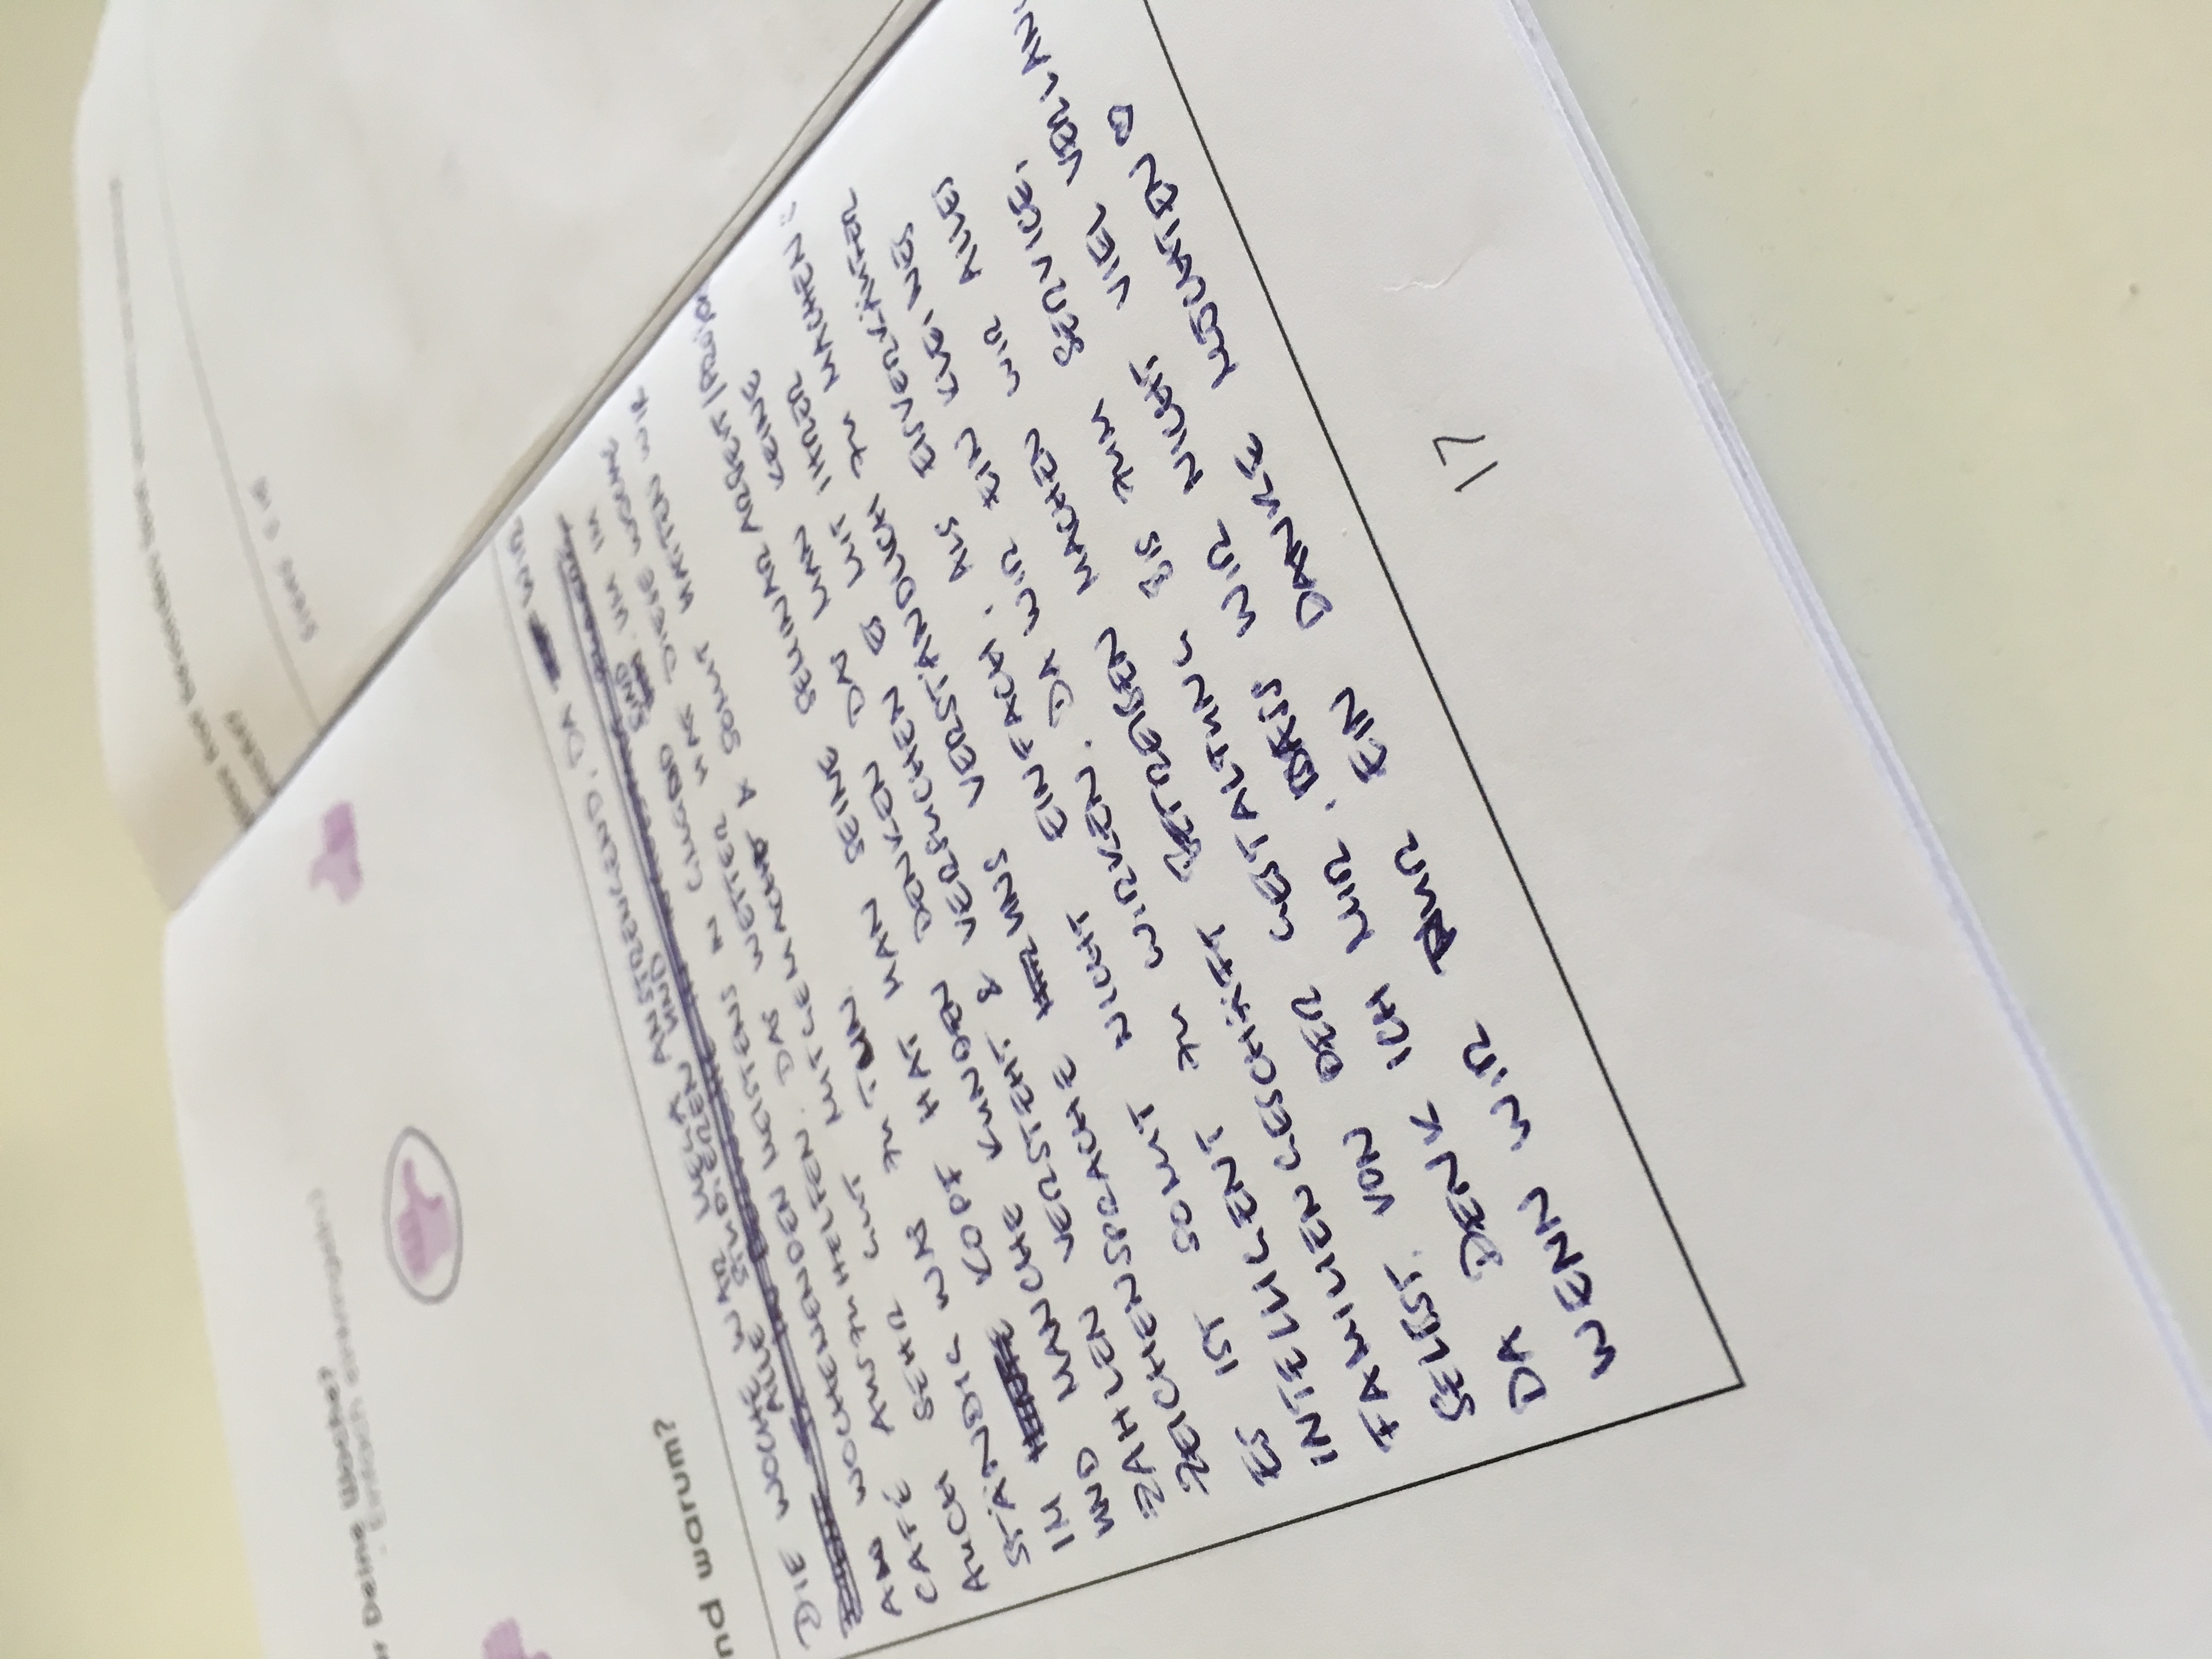 Deine Woche?
- Einfach einkringeln)
nd warum?
DIE WOCHE WAR MEGA ANSTRENGEND, DA WIR
ALLE STUDIEREN UND
AN WOCHENENDEN MEISTENS IN GMÜND SIND UM IM
CAFÉ AUSZUHELFEN. DAS WETTER HAT DIESE WOCHE
AUCH SEHR GUT MITGEMACHT & SOMIT HATTEN WIR
STÄNDIG WAS ZU TUN.
IM KOPF HAT MAN SEINE SEMINARARBEIT/
UND MANCHE KUNDEN DENKEN DAS MAN KEINE
ZAHLEN VERSTEHT & VERSUCHEN ES MIT IHRER
ZEICHENSPRACHE UNS VERSTÄNDLICH ZU MACHEN
ES IST SOMIT NICHT EINFACH, ALS EISVERKÄUFER
INTELLIGENT ZU WIRKEN. DA WIR EIN KLEINES
FAMILIENGESCHÄFT BETREIBEN MACHEN WIR ALLES
SELBST. VON DER GESTALTUNG BIS ZUM SERVICE.
DA DENK ICH MIR, DASS WIR NICHT VIEL VERLAN
WENN WIR NUR EIN DANKE MÖCHTEN ♡
17